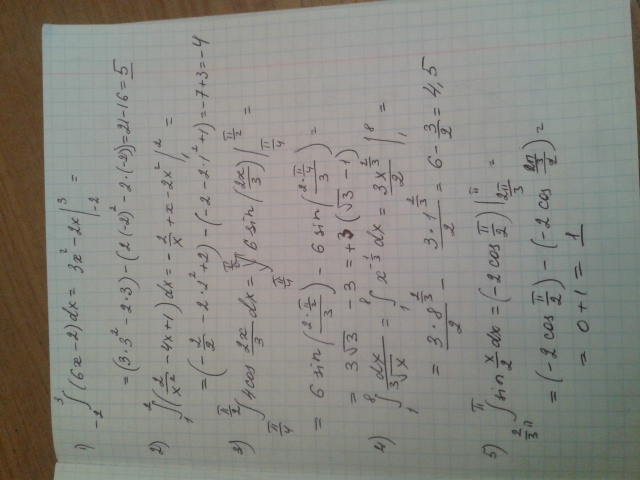 1) ∫_{-2}^{3} (6x-2)dx = 3x² - 2x |_{-2}^{3} =
= (3·3² - 2·3) - (2(-2)² - 2·(-2)) = 21-16 = 5
2) ∫_{1}^{2} (2/x² - 4x+1)dx = -2/x + x - 2x² |_{1}^{2} =
= (-2/2 - 2·2² + 2) - (-2 - 2·1² + 1) = -7+3 = -4
3) ∫_{π/4}^{π/2} 4cos 2x/3 dx = 6 sin(2x/3) |_{π/4}^{π/2} =
= 6 sin(2·π/2 / 3) - 6 sin(2·π/4 / 3) =
= 3√3 - 3 = +3(√3 - 1)
4) ∫_{1}^{8} dx/∛x = ∫_{1}^{8} x^{-1/3} dx = 3x^{2/3}/2 |_{1}^{8} =
= 3·8^{2/3}/2 - 3·1^{2/3}/2 = 6 - 3/2 = 4,5
5) ∫_{2/3 π}^{π} sin x/2 dx = (-2cos π/2) |_{2π/3}^{π} =
= (-2cos π/2) - (-2cos 2π/3 /2) =
= 0+1 = 1